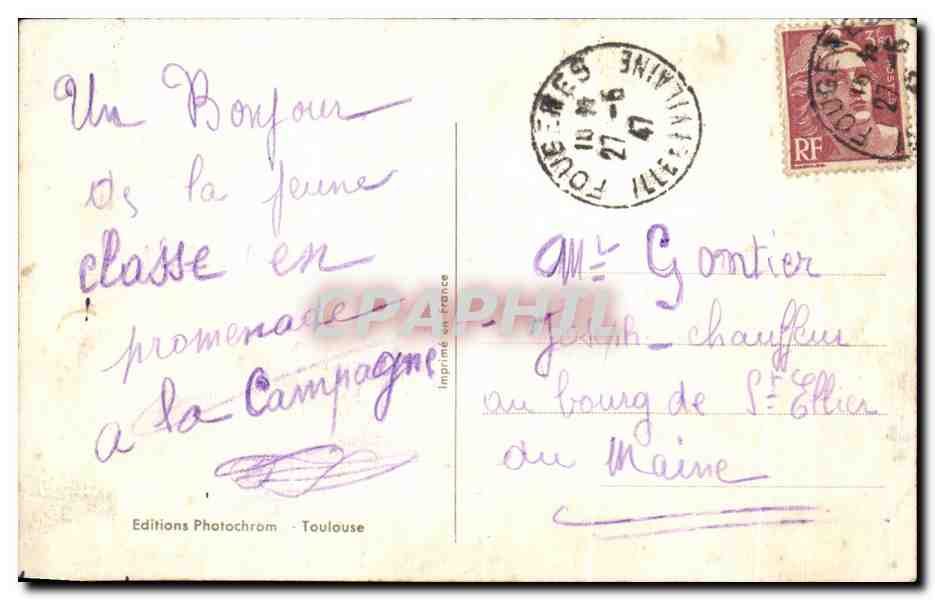 Un Bonjour
de la jeune
classe en
promenade
a la Campagne
Editions Photochrom - Toulouse
Imprimé en France
FOUGERES
ILLE-ET-VILAINE
18 H
27-6
47
RF
Mr Gontier
Joseph - chauffeur
au bourg de St Ellier
du Maine
CPAPHIL